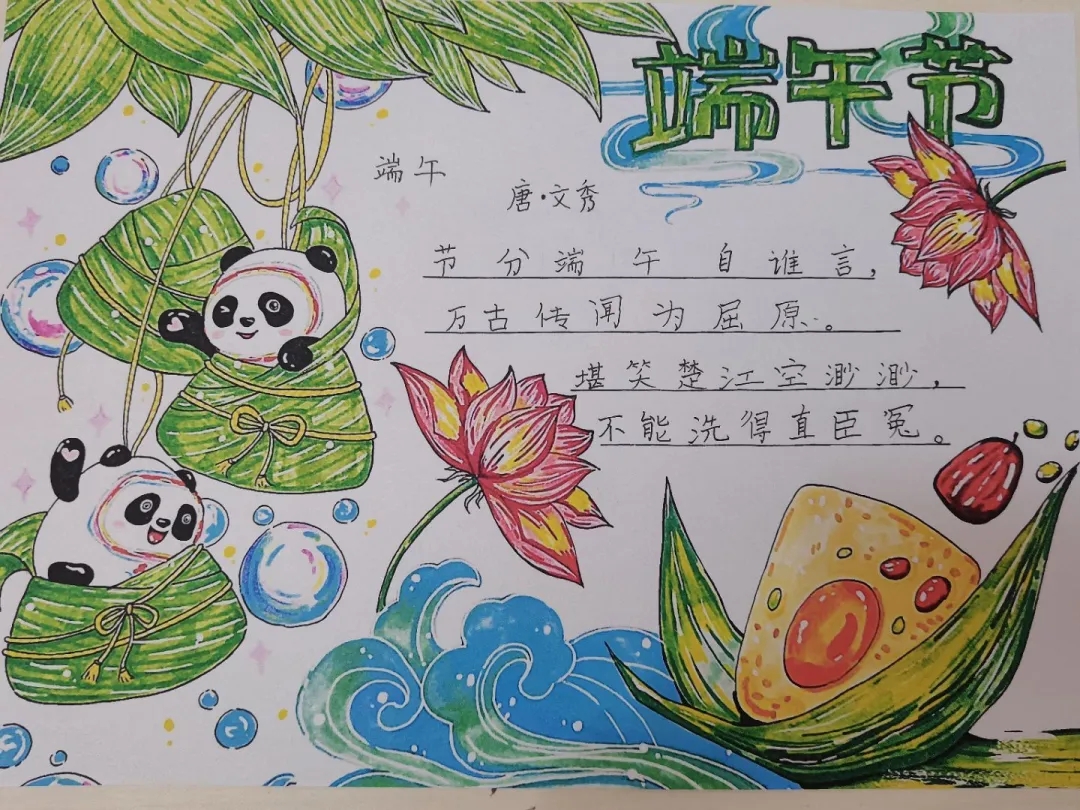 端午节
端午
唐·文秀
节分端午自谁言，
万古传闻为屈原。
堪笑楚江空渺渺，
不能洗得直臣冤。